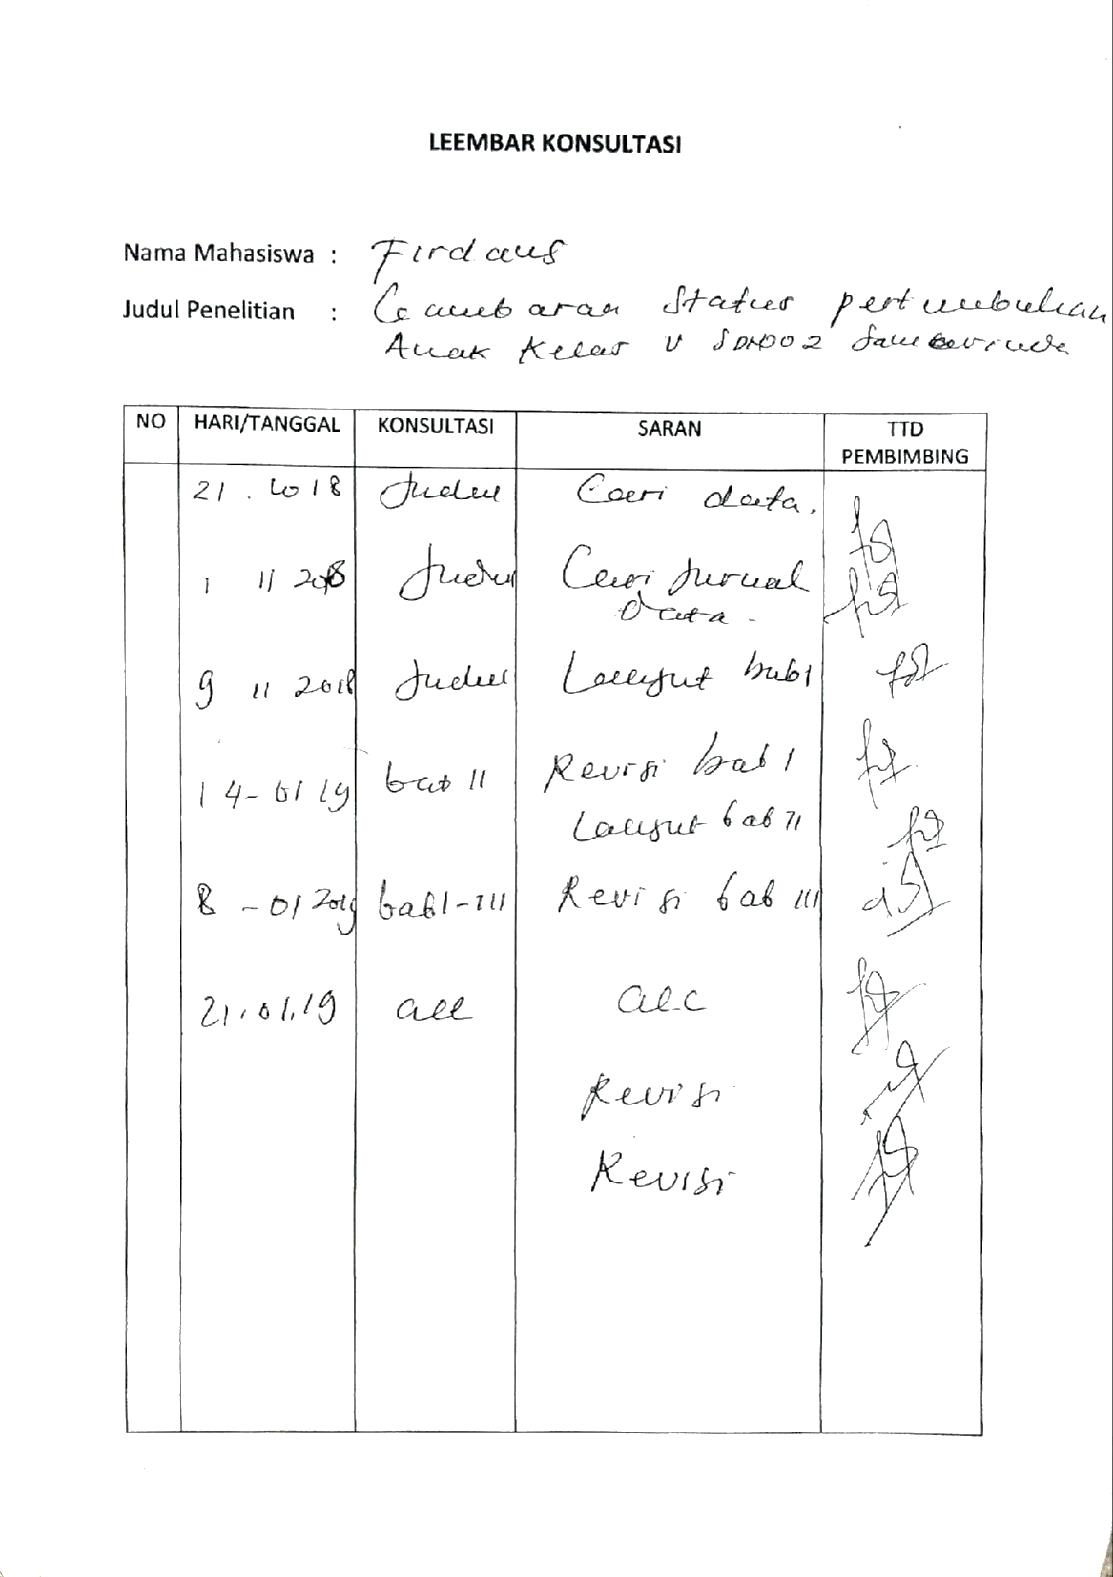 LEEMBAR KONSULTASI
Nama Mahasiswa : Firdaus
Judul Penelitian : Gambaran Status pertumbuhan
Anak Kelas V SDN002 Samarinda
NO HARI/TANGGAL KONSULTASI SARAN TTD
PEMBIMBING
21 . 10 18 Judul Cari data.
1 11 2018 Judul Cari Jurnal
Data -
9 11 2018 Judul Lanjut bab 1
14-01 19 bab II Revisi bab I
Lanjut bab II
8 - 01 2019 bab I-III Revisi bab III
21.01.19 all acc
Revisi
Revisi